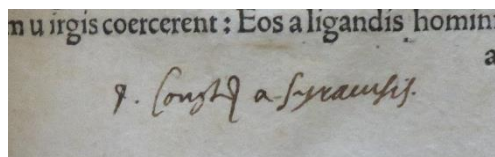 m u irgis coercerent : Eos a ligandis homini
a
a Syracusis.